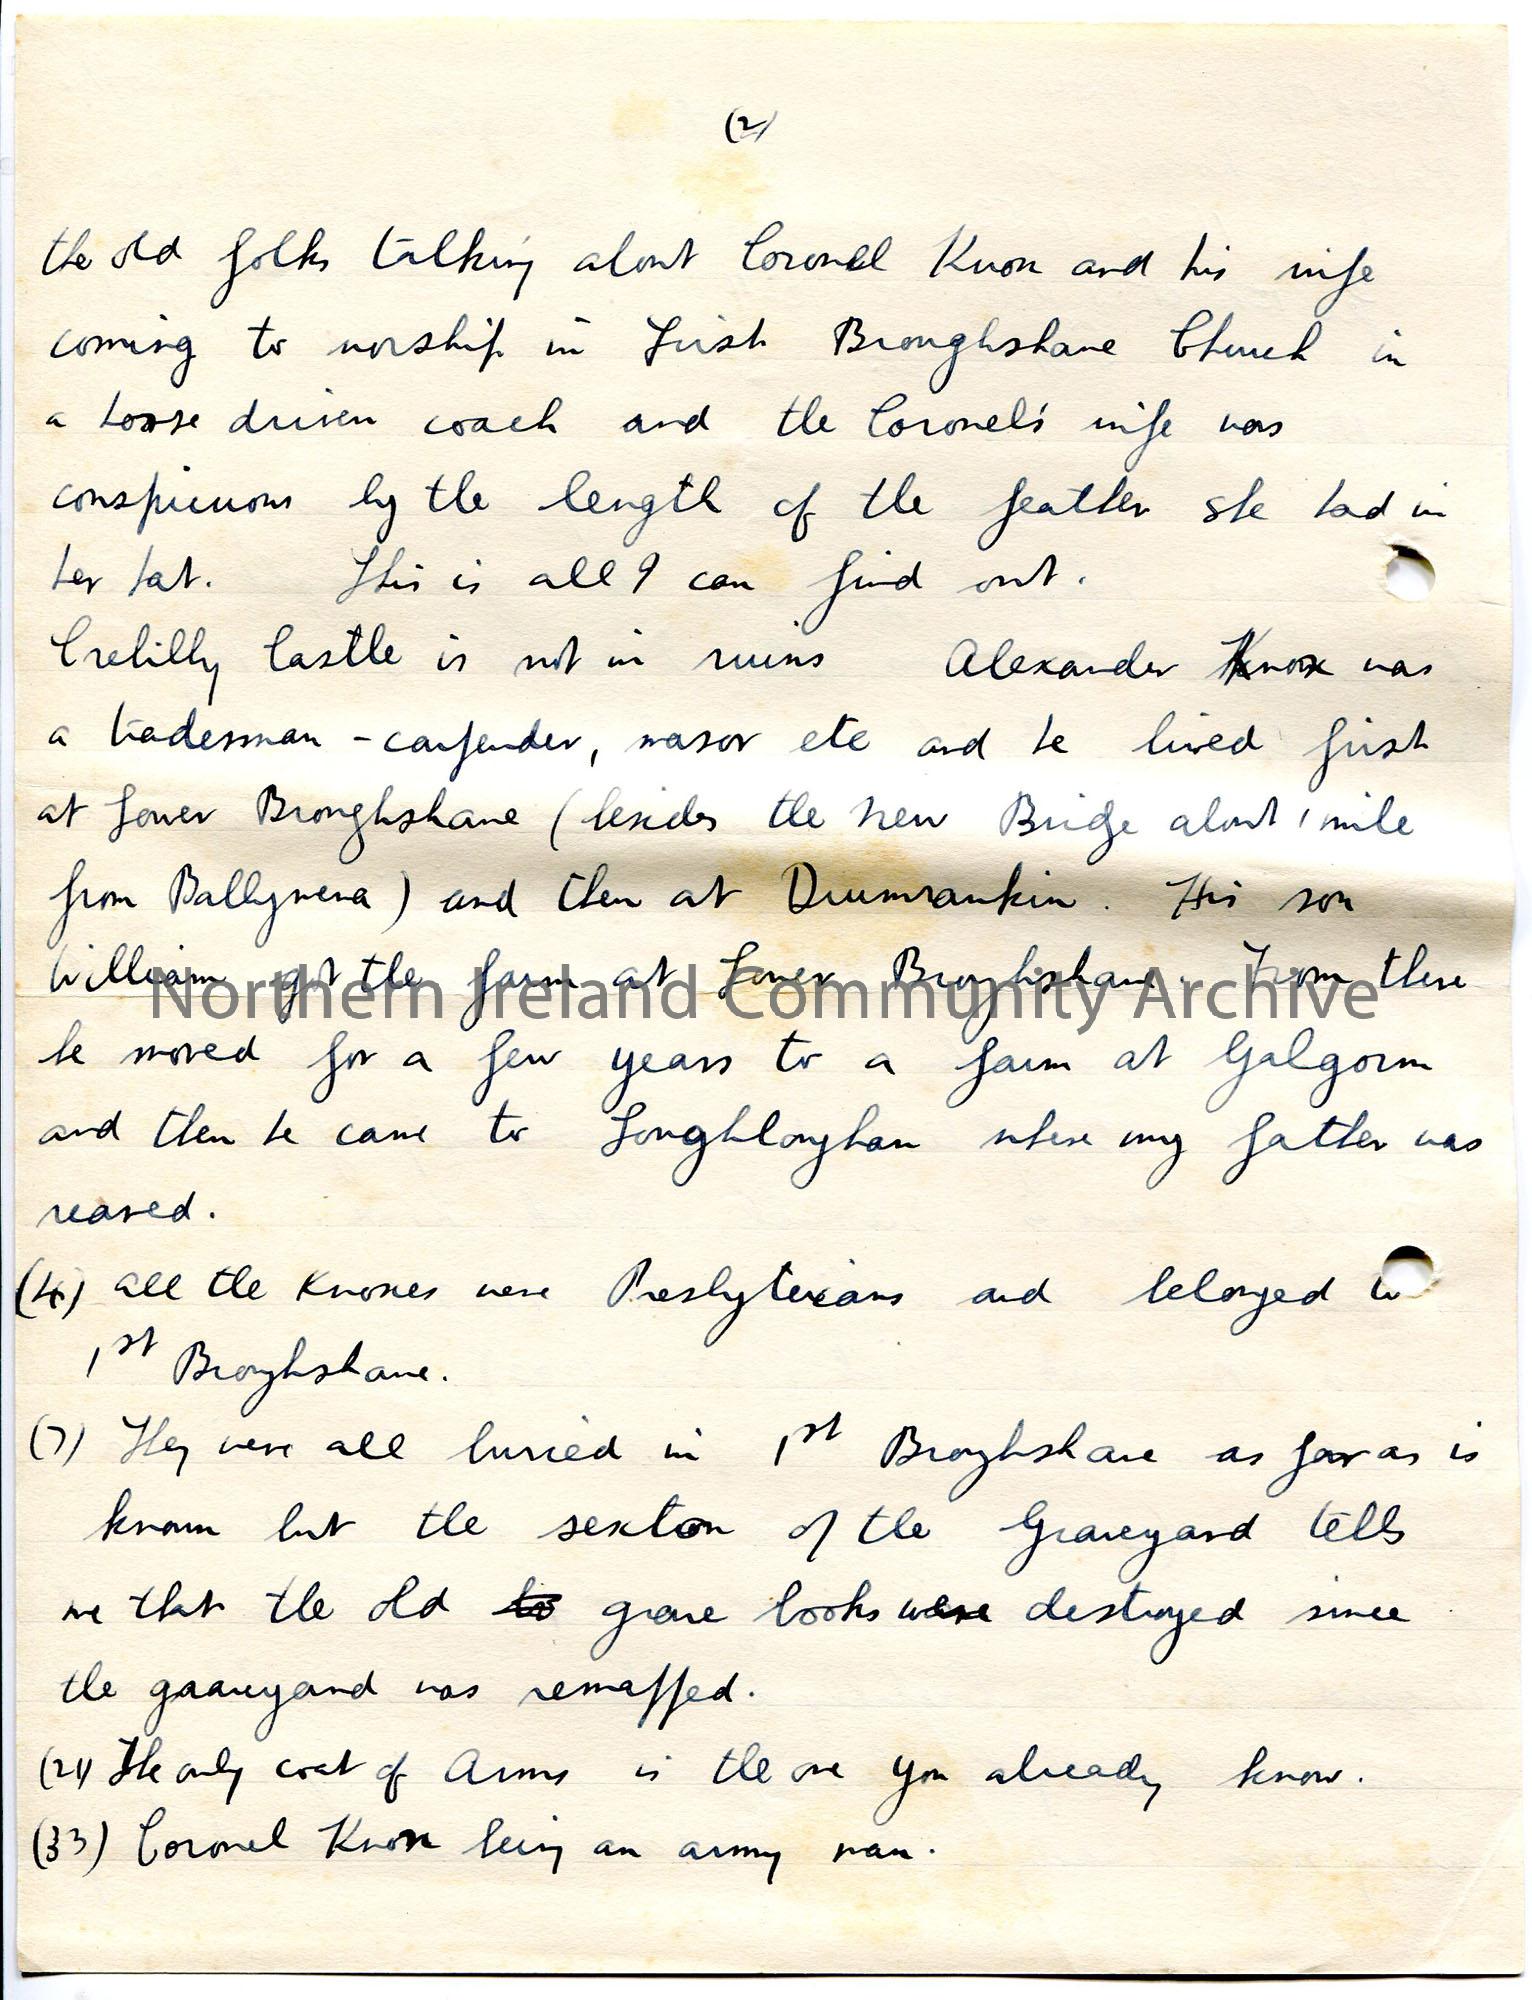 (2)
the old folks talking about Coronel Knox and his wife
coming to worship in First Broughshane Church in
a horse driven coach and the Coronel's wife was
conspicuous by the length of the feather she had in
her hat. This is all I can find out.
Crebilly Castle is not in ruins Alexander Knox was
a tradesman - carpender, mason etc and he lived first
at Lower Broughshane (besides the new Bridge about 1 mile
from Ballymena) and then at Drumrankin. His son
William got the farm at Lower Broughshane. From there
he moved for a few years to a farm at Galgorm
and then he came to Loughloughan where my father was
reared.
(4) all the Knoxes were Presbyterians and belonged to
1st Broughshane.
(7) They were all buried in 1st Broughshane as far as is
known but the sexton of the Graveyard tells
me that the old grave books were destroyed since
the graveyard was remapped.
(21) The only coat of Arms is the one you already know.
(33) Coronel Knox being an army man.
Northern Ireland Community Archive